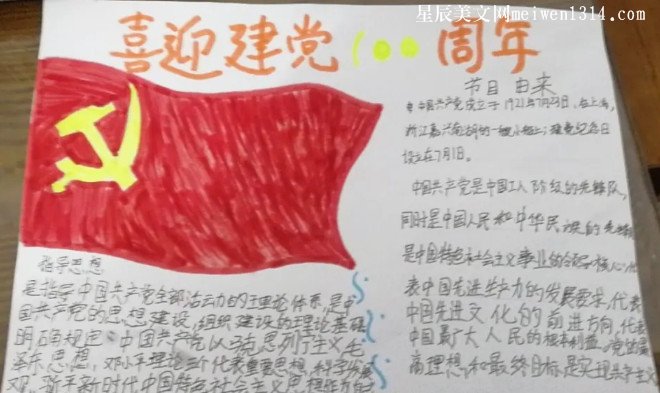 星辰美文网meiwen1314.com
喜迎建党100周年
节日 由来
中国共产党成立于1921年7月23日,在上海,
浙江嘉兴南湖的一艘小船上;建党纪念日
设立在7月1日。
中国共产党是中国工人阶级的先锋队,
同时是中国人民和中华民族的先锋
是中国特色社会主义事业的领导核心,代
表中国先进生产力的发展要求,代表
中国先进文化的前进方向,代表
中国最广大人民的根本利益。党的最
高理想和最终目标是实现共产主义
指导思想
是指导中国共产党全部活动的理论体系,是中
国共产党的思想建设,组织建设的理论基础
明确规定:中国共产党以马克思列宁主义毛
泽东思想,邓小平理论三个代表重要思想,科学发展
观,新时代中国特色社会主义思想作为自